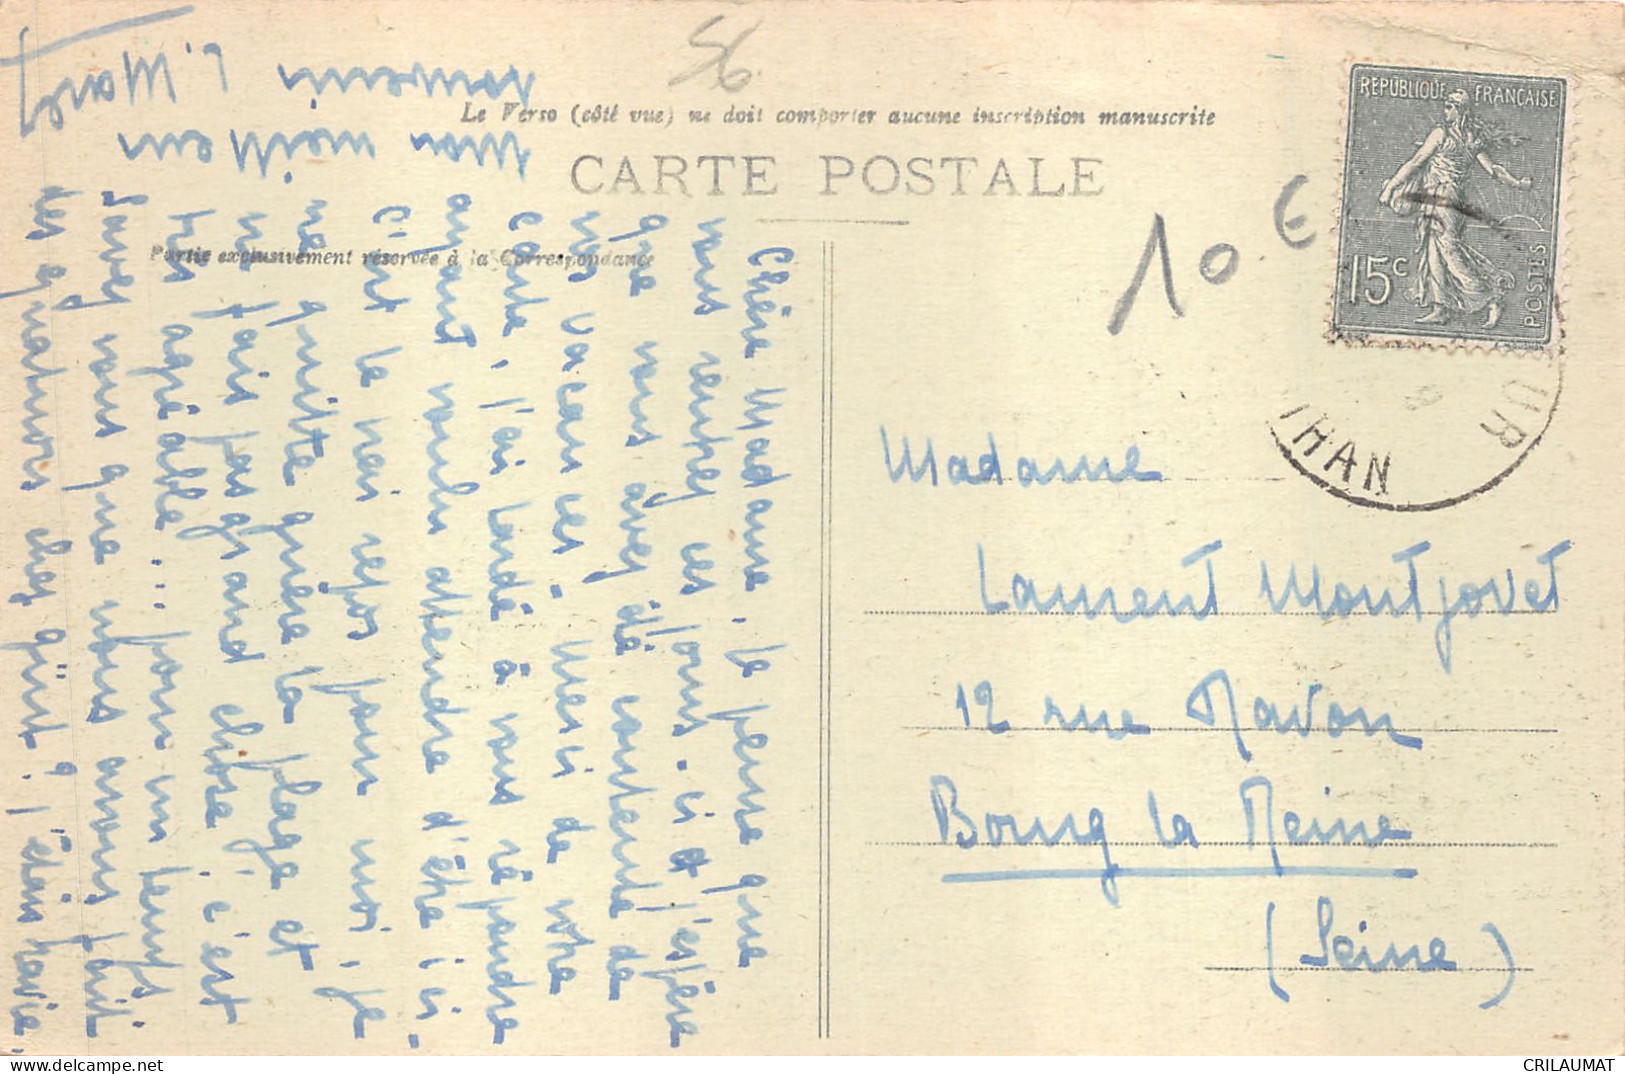 56
Le Verso (côté vue) ne doit comporter aucune inscription manuscrite
CARTE POSTALE
Partie exclusivement réservée à la Correspondance
10 €
RÉPUBLIQUE FRANÇAISE
15c
POSTES
UR
IHAN
Madame
Laurent Montjovet
12 rue Ravon
Bourg la Reine
(Seine)
Chère Madame, je pense que
vous rentrez ces jours-ci et j'espère
que vous avez été contente de
vos vacances. Merci de votre
carte, j'ai tardé à vous répondre
ayant voulu attendre d'être ici.
C'est le vrai repos pour moi, je
ne quitte guère la plage et
ne fais pas grand chose, c'est
très agréable... pour un temps
Savez vous que nous avons fait
des quatuors chez 
 ? j'étais ravie,
mon meilleur
souvenir